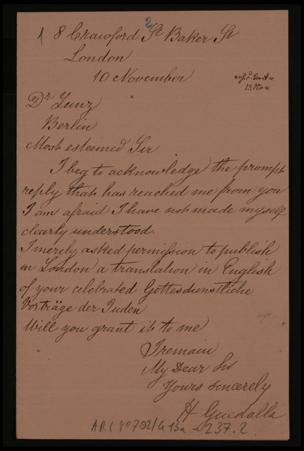 1 8 Crawford St Baker St
London
10 November
Dr Zunz
Berlin
Most esteemed Sir
I beg to acknowledge the prompt
reply that has reached me from you
I am afraid I have not made myself
clearly understood.
I merely asked permission to publish
in London a translation in English
of your celebrated Gottesdienstliche
Vorträge der Juden
Will you grant it to me
I remain
My Dear Sir
Yours sincerely
H Guedalla
237.2